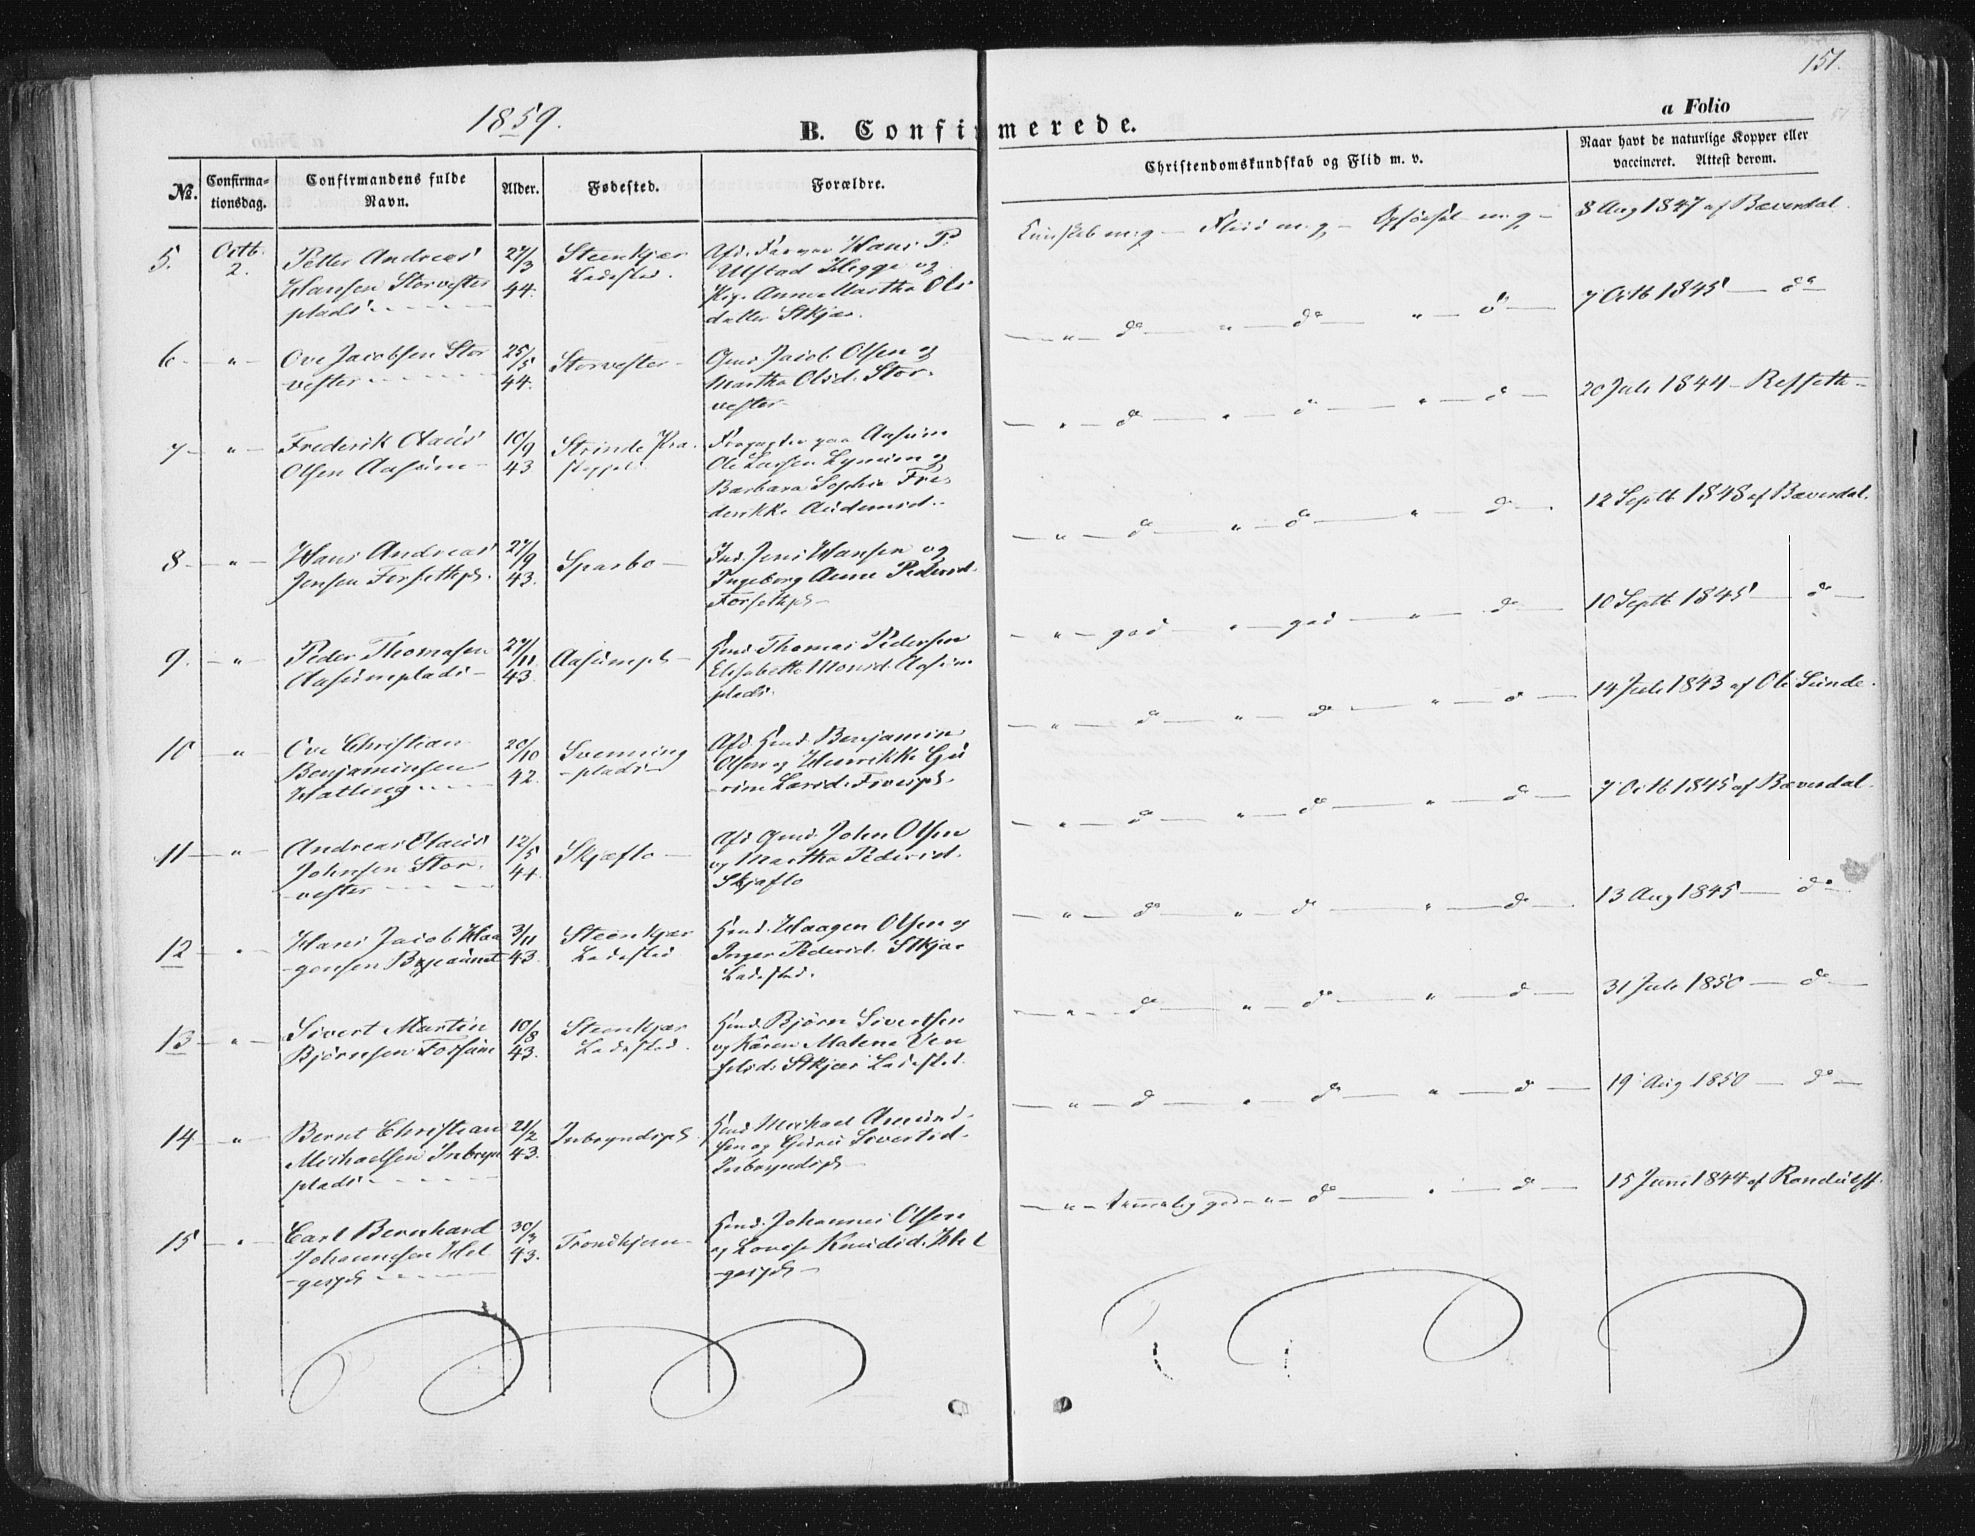 151.
1859.
B. Confirmerede.
a Folio
No.
Confirma-
tionsdag.
Confirmandens fulde
Navn.
Alder.
Fødested.
Forældre.
Christendomskundskab og Flid m. v.
Naar havt de naturlige Kopper eller
vaccineret. Attest derom.
5.
Octb.
2.
Petter Andreas
Hansen Storvester
plads
27/3
44.
Steenkjær
Ladested.
Afd. Farver Hans P.
Ulstad Hegge og
Anne Martha Ols
datter Stkjær.
Kundskab m. g — Flid m. g — Opførsel m. g —
8 Aug 1847 af Bæverdal.
6 — " —
Ove Jacobsen Stor
vester
25/5
44.
Storvester —
Gmd. Jacob Olsen og
Martha Olsd. Stor-
vester
— " — do — " — do — " — do —
7 Octb 1845 — do
7 — " —
Frederik Olaus
Olsen Aasum —
10/9
43
Strinde Præ-
stegjeld
Forpagter paa Aasum
Ole Larsen Lynum og
Barbara Sophie Fre-
derikke
— " — do — " — do — " — do —
20 Juli 1844 —
8 — " —
Hans Andreas
Jensen Forsethpl.
27/9
43.
Sparbo —
Ind. Jens Hansen og
Ingeborg Anne Pedersd.
Forsethpl —
— " — do — " — do — " — do —
12 Septb 1848 af Bæverdal.
9. — "
Peder Thomasen
Aasumplads —
27/11
43.
Aasumpl —
Hmd. Thomas Pedersen
Elisabeth Monsd. Aasum
plads.
— " — god — " — god — " — do —
10 Septb 1845 — do —
10 "
Ove Christian
Benjaminsen
Hatling
20/10
42.
Svenning
-plads —
Afd. Hmd. Benjamin
Olsen og Henrikke Gu
— " — do — " — do — " — do —
14 Juli 1843 af Ole Sunde.
11 — " —
Andreas Olaus
Johnsen Stor-
-vester
12/5
44.
Skjæflo —
Afd Gmd. John Olsen
og Martha Pedersd.
Skjæflo
— " — do — " — do — " — do —
7 Octb 1845 af Bæverdal.
12 — " —
Hans Jacob Haa
-gensen
3/11
43.
Steenkjær
Ladested
Hmd. Haagen Olsen og
Inger Pedersd. Stkjær
Ladested.
— " — do — " — do — " — do —
13 Aug 1845 — do —
13 — " —
Sivert Martin
Bjørnsen
10/8
43.
Steenkjær
Ladested.
Hmd. Bjørn Sivertsen
og Karen Malena
Stkjær Ladested.
— " — do — " — do — " — do —
31 Juli 1850 — do —
14 — " —
Bernt Christian
Michaelsen Inbryn
plads
21/2
43.
Inbryndspl.
Hmd Michael Amund-
sen og Guru Sivertsd.
Inbryndspl —
— " — do — " — do — " — do —
19 Aug 1850 — do —
15 — " —
Carl Bernhard
Johannesen Hel
-gespl
30/3
43.
Trondhjem —
Hmd. Johannes Olsen
og Lovise Knudsd. Hel
-gespl —
— " — temmelig god — " — do — " — do —
15 Juni 1844 af Randulff.